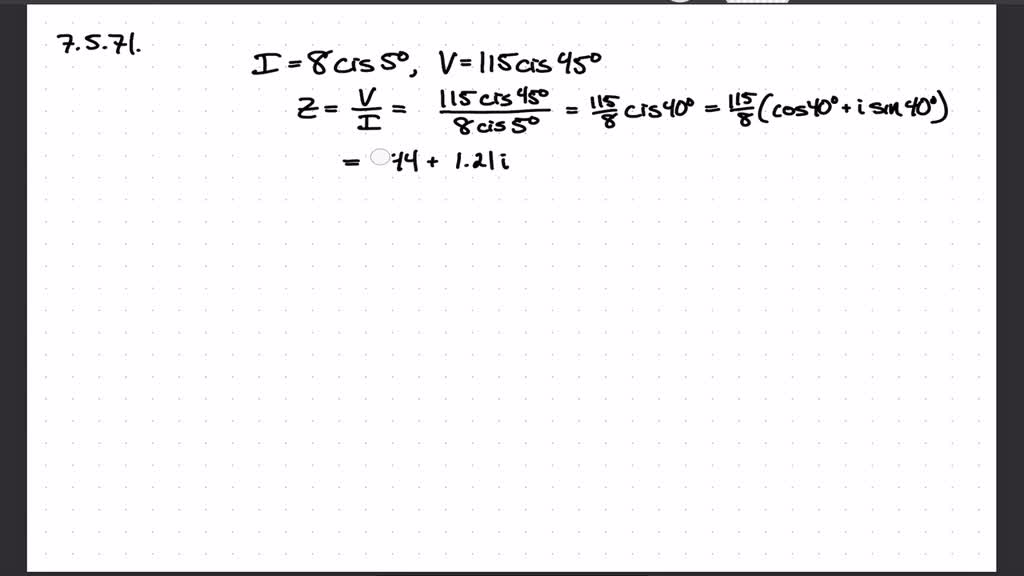 7.5.71.
I = 8 cis 5°, V = 115 cis 45°
Z = V/I = 115 cis 45° / 8 cis 5° = 115/8 cis 40° = 115/8 (cos 40° + i sin 40°)
= 44 + 1.21i